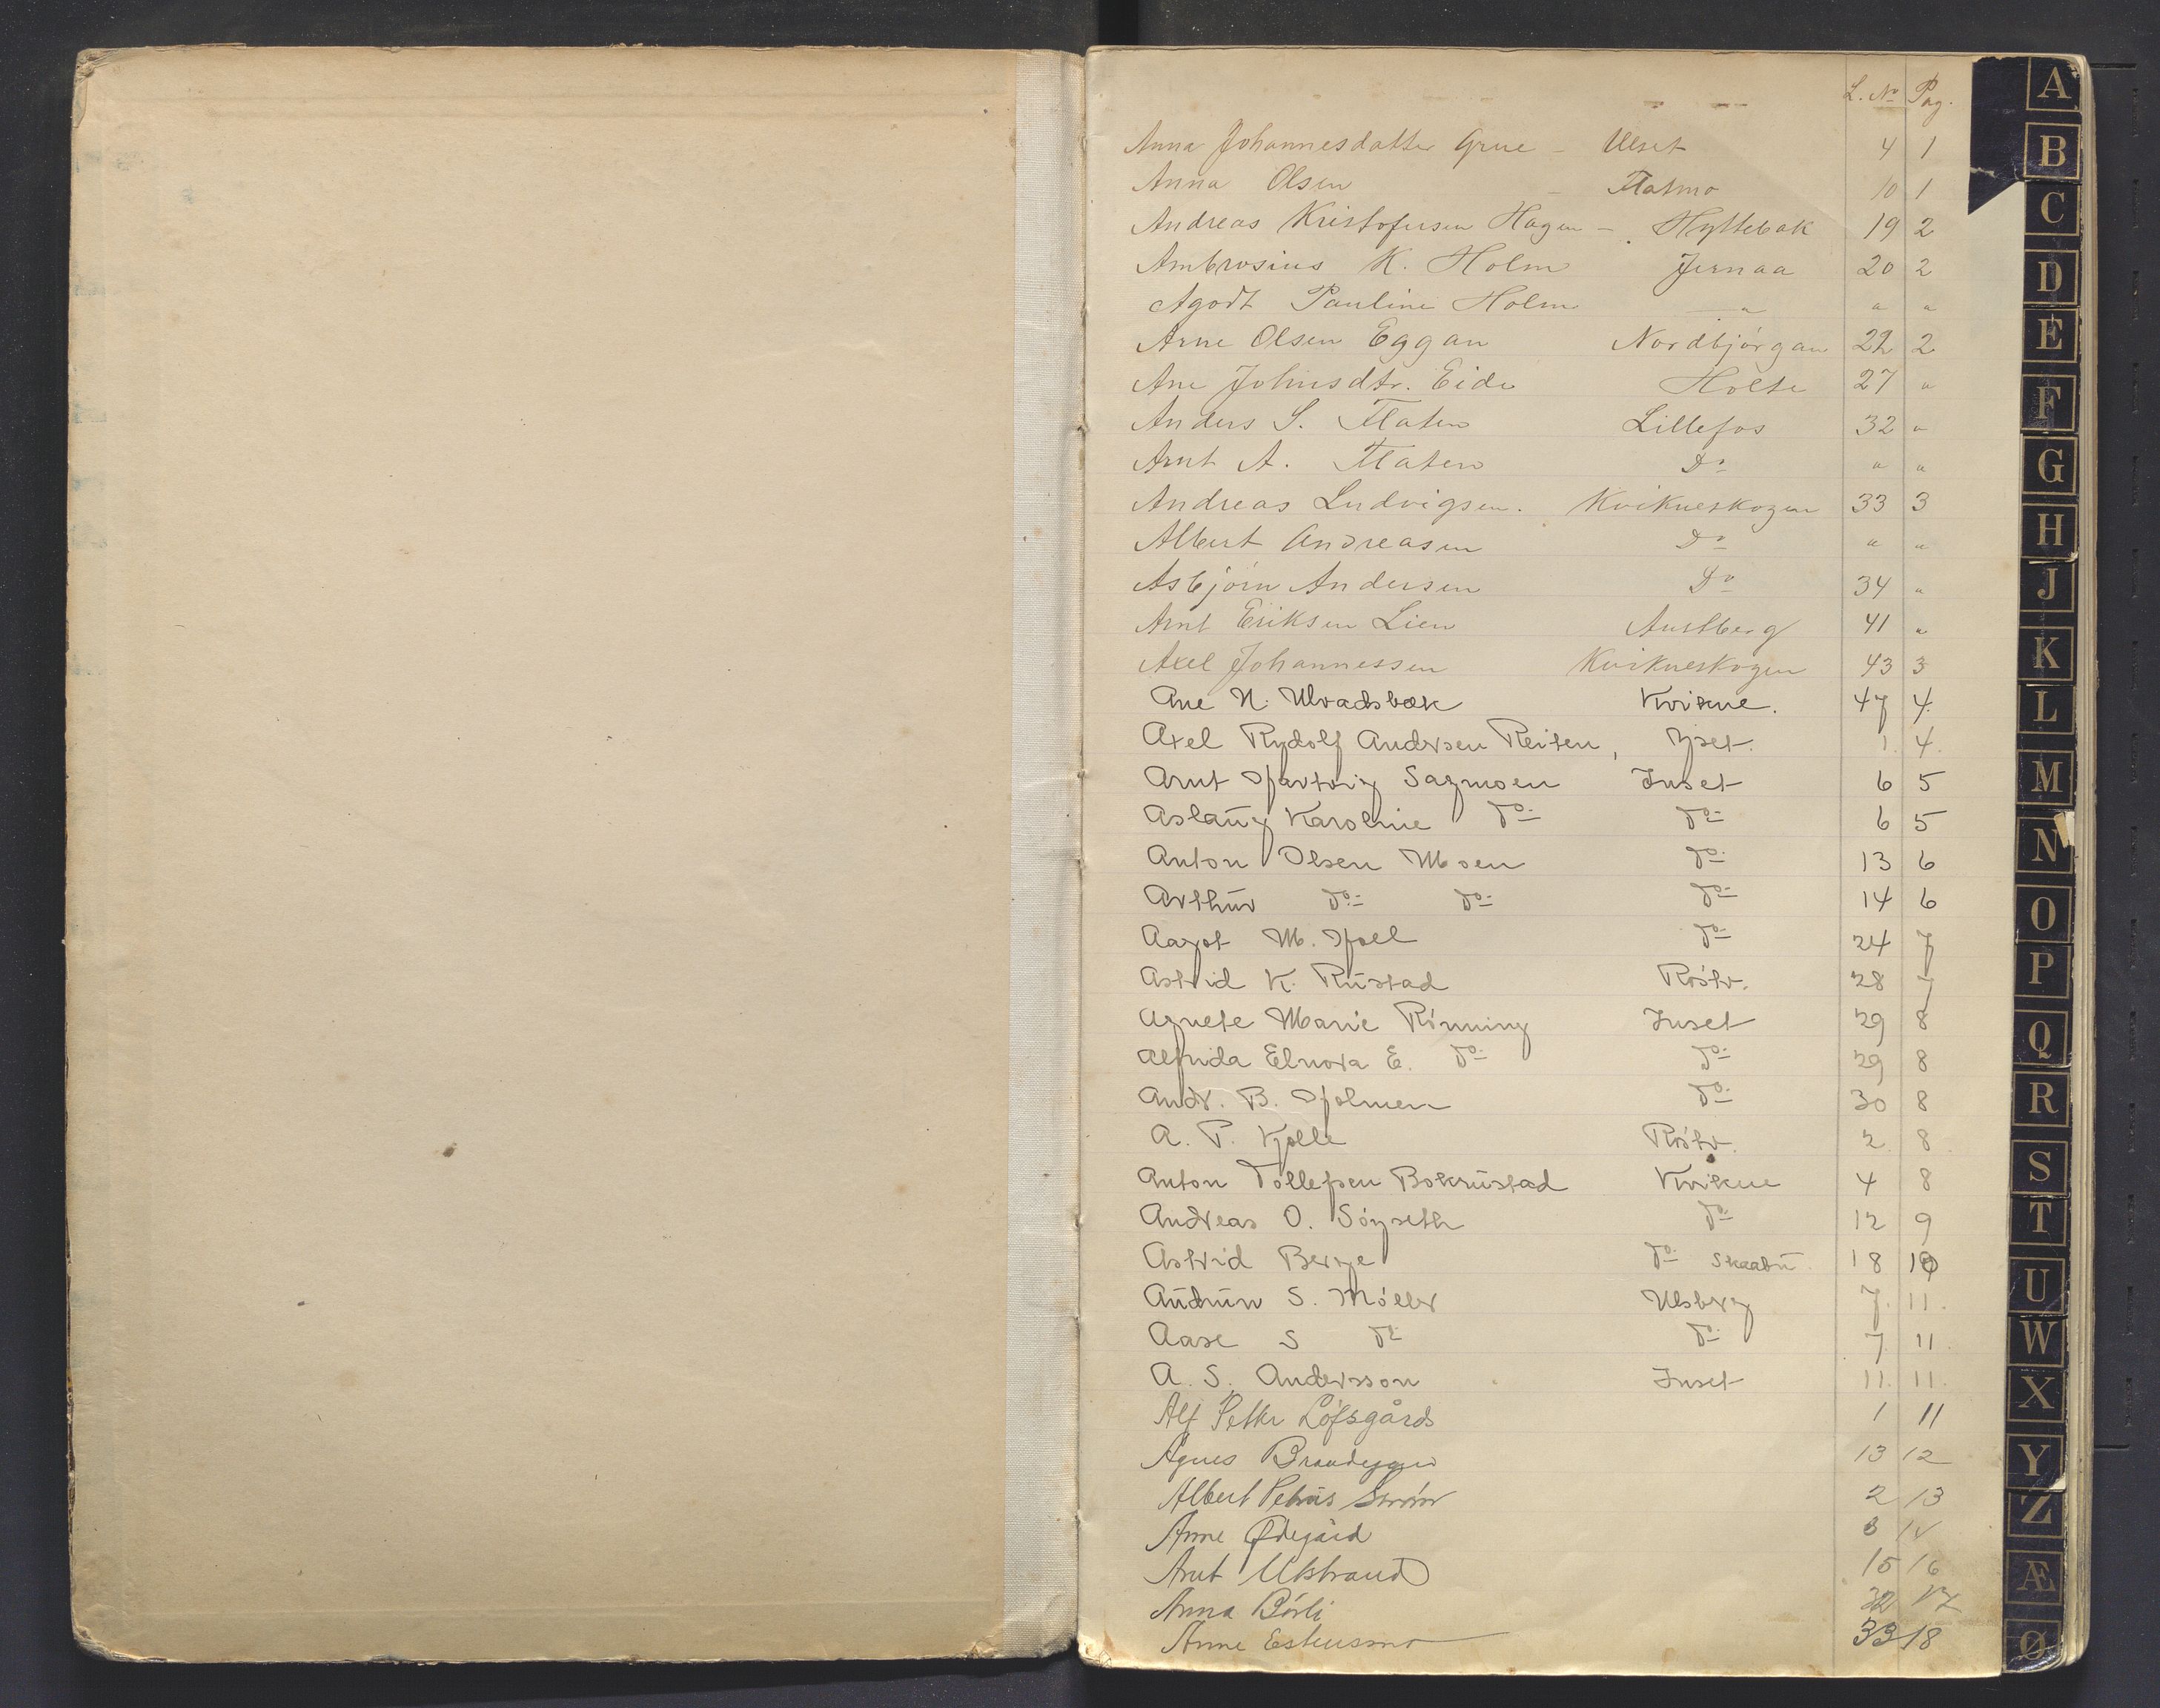 L. No Pag.
Anna Johannesdatter Grue - Ulset 4 1
Anna Olsen - Flatmo 10 1
Andreas Kristofersen Hagen - Hyttebak 19 2
Ambrosius K. Holm Jernaa 20 2
Agodt Pauline Holm " " "
Arne Olsen Eggan Nordbjörgan 22 2
Ane Johnsdtr. Eide Holte 27 "
Anders S. Flaten Lillefos 32 "
Arnt A. Flaten Do " "
Andreas Ludvigsen. Kvikneskogen 33 3
Albert Andreasen Do " "
Asbjörn Andersen Do 34 "
Arnt Eriksen Lien Austberg 41 "
Axel Johannessen Kvikneskogen 43 3
Ane N. Ulvadsbæk Kvikne. 47 4.
Axel Rydolf Andersen Reiten, Yset. 1. 4.
Arnt Hartvig Sagmoen Inset 6 5
Aslaug Karoline do do 6 5
Anton Olsen Moen do 13 6
Arthur do do do 14 6
Aagot M. Hoel do 24 7
Astrid K. Rustad Röstv. 28 7
Agnete Marie Rönning Inset 29 8
Alfrida Elnora E. do do 29 8
Andr. B. Holmen do 30 8
A. P. Kjelle Röstv. 2 8
Anton Tollefsen Bokrustad Kvikne 4 8
Andreas O. Söyseth do 12 9
Astrid Berge do Skaabu. 18 10
Audrun S. Möller Ulsberg 7. 11.
Aase S do do 7 11.
A. S. Andersson Inset 11. 11.
Alf Petter Löfsgård 1 11
Agnes Brandeggen 13 12
Albert Petrus 2 13
Anne Ødegård 3 14
Arnt Ulstrand 15 16
Anna Börli 32 17
Anne Estensmo 33 18
A
B
C
D
E
F
G
H
J
K
L
M
N
O
P
Q
R
S
T
U
W
X
Y
Z
Æ
Ø